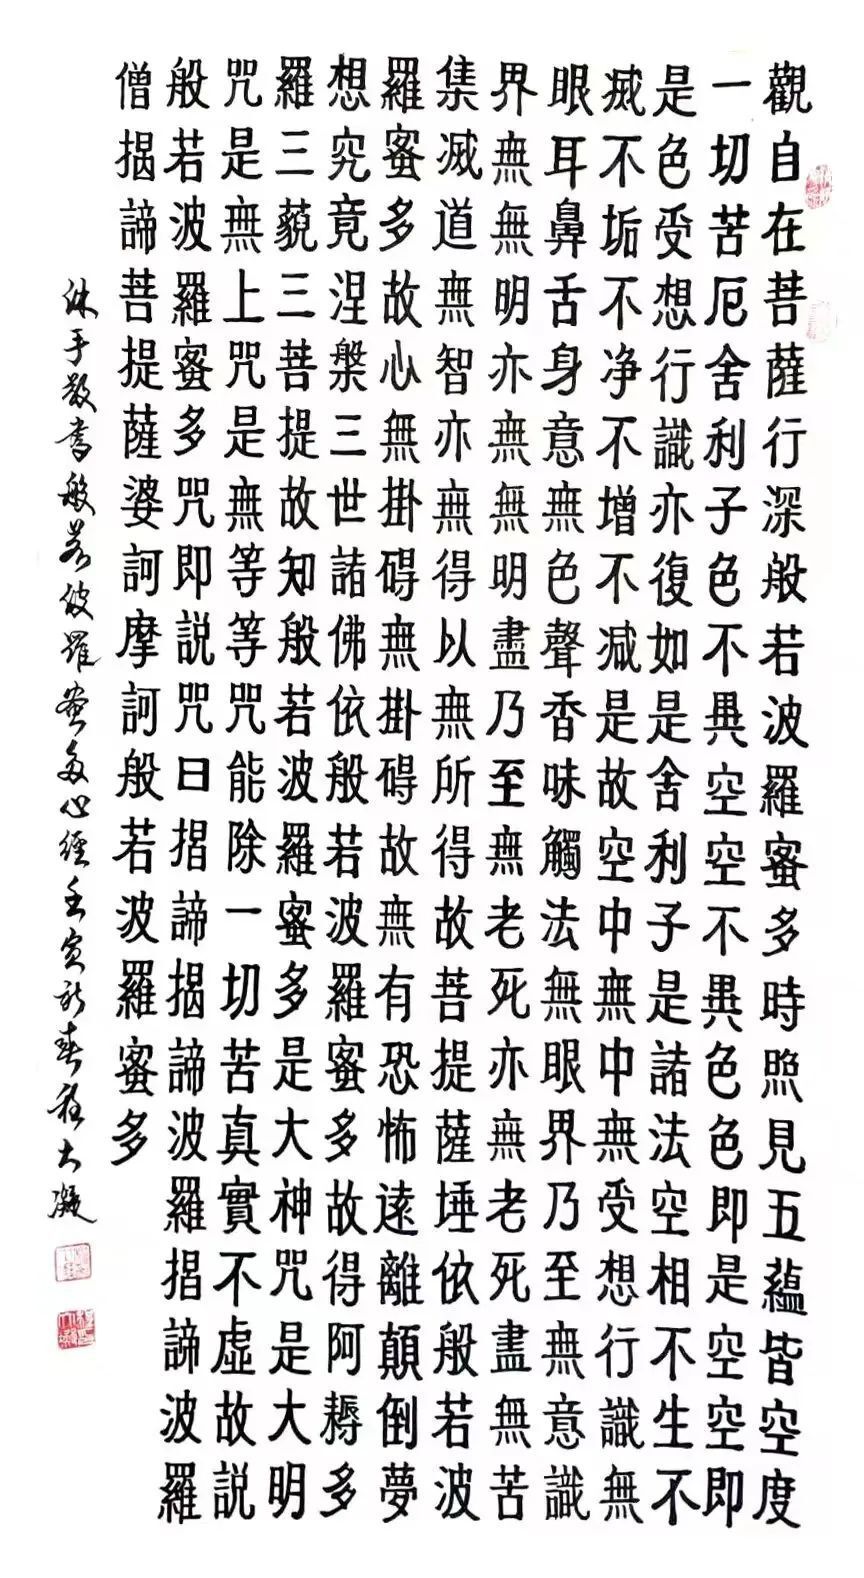 觀自在菩薩行深般若波羅蜜多時照見五蘊皆空度
一切苦厄舍利子色不異空空不異色色即是空空即
是色受想行識亦復如是舍利子是諸法空相不生不
滅不垢不净不增不减是故空中無中無受想行識無
眼耳鼻舌身意無色聲香味觸法無眼界乃至無意識
界無無明亦無無明盡乃至無老死亦無老死盡無苦
集滅道無智亦無得以無所得故菩提薩埵依般若波
羅蜜多故心無掛碍無掛碍故無有恐怖遠離顛倒夢
想究竟涅槃三世諸佛依般若波羅蜜多故得阿耨多
羅三藐三菩提故知般若波羅蜜多是大神咒是大明
咒是無上咒是無等等咒能除一切苦真實不虛故説
般若波羅蜜多咒即説咒曰揭諦揭諦波羅揭諦波羅
僧揭諦菩提薩婆訶摩訶般若波羅蜜多
沐手敬書般若波羅蜜多心經壬寅新春程大凝